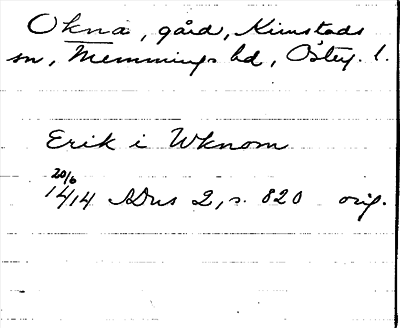 Okna, gård, Kimstads
sn, Memmings hd, Östg. l.
Erik i Wknom
20/6
1414 SDns 2, s. 820 orig.